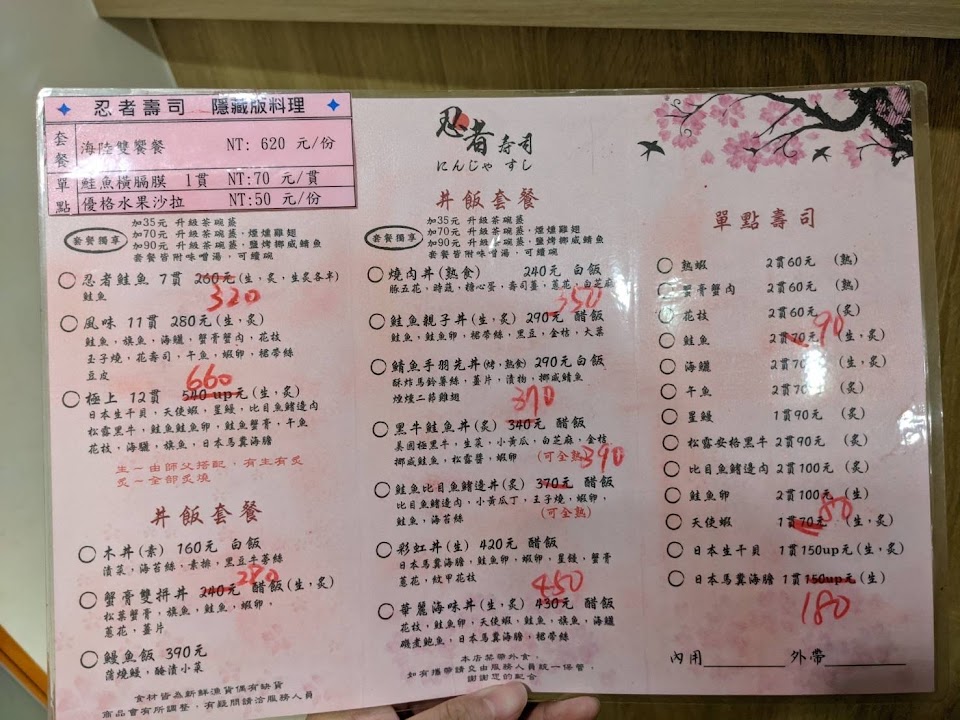 忍者壽司 隱藏版料理
套餐 海陸雙饗餐 NT: 620 元/份
單點 鮭魚橫膈膜 1貫 NT:70 元/貫
優格水果沙拉 NT:50 元/份
套餐獨享
加35元 升級茶碗蒸
加70元 升級茶碗蒸,煙燻雞翅
加90元 升級茶碗蒸,鹽烤挪威鯖魚
套餐皆附味噌湯,可續碗
忍者鮭魚 7貫 260元(生,炙,生炙各半)
320
鮭魚
風味 11貫 280元(生,炙)
鮭魚,旗魚,海鱺,蟹膏蟹肉,花枝
玉子燒,花壽司,干魚,蝦卵,裙帶絲
豆皮
660
極上 12貫 540 up元(生,炙)
日本生干貝,天使蝦,星鰻,比目魚鰭邊肉
松露黑牛,鮭魚鮭魚卵,鮭魚蟹膏,干魚
花枝,海鱺,旗魚,日本馬糞海膽
生-由師父搭配,有生有炙
炙-全部炙燒
丼飯套餐
木丼(素) 160元 白飯
漬菜,海苔絲,素排,黑豆牛蒡絲
280
蟹膏雙拼丼 240元 醋飯(生,炙)
松葉蟹膏,旗魚,鮭魚,蝦卵,
蔥花,薑片
鰻魚飯 390元
蒲燒鰻,醃漬小菜
食材皆為新鮮漁貨偶有缺貨
商品會有所調整,有疑問請洽服務人員
忍者壽司
にんじゃ すし
丼飯套餐
套餐獨享
加35元 升級茶碗蒸
加70元 升級茶碗蒸,煙燻雞翅
加90元 升級茶碗蒸,鹽烤挪威鯖魚
套餐皆附味噌湯,可續碗
燒肉丼(熟食) 240元 白飯
豚五花,時蔬,糖心蛋,壽司薑,蔥花,白芝麻
350
鮭魚親子丼(生,炙) 290元 醋飯
鮭魚,鮭魚卵,裙帶絲,黑豆,金桔,大葉
鯖魚手羽先丼(烤,熟食) 290元 白飯
酥炸馬鈴薯絲,薑片,漬物,挪威鯖魚
煙燻二節雞翅
370
黑牛鮭魚丼(炙) 340元 醋飯
美國極黑牛,生菜,小黃瓜,白芝麻,金桔
挪威鮭魚,松露醬,蝦卵 (可全熟)
390
鮭魚比目魚鰭邊丼(炙) 370元 醋飯
比目魚鰭邊肉,小黃瓜丁,玉子燒,蝦卵,
鮭魚,海苔絲 (可全熟)
彩虹丼(生) 420元 醋飯
日本馬糞海膽,鮭魚卵,蝦卵,星鰻,蟹膏
蔥花,紋甲花枝
450
華麗海味丼(生,炙) 430元 醋飯
花枝,鮭魚卵,天使蝦,鮭魚,旗魚,海鱺
磯煮鮑魚,日本馬糞海膽,裙帶絲
本店禁帶外食,
如有攜帶請交由服務人員統一保管,
謝謝您的配合
單點壽司
熟蝦 2貫60元 (熟)
蟹膏蟹肉 2貫60元 (熟)
花枝 2貫60元 (生,炙)
90
鮭魚 2貫70元 (生,炙)
海鱺 2貫70元 (生,炙)
干魚 2貫70元 (生,炙)
星鰻 1貫90元 (炙)
松露安格黑牛 2貫90元 (炙)
比目魚鰭邊肉 2貫100元 (炙)
鮭魚卵 2貫100元 (生)
80
天使蝦 1貫70元 (生,炙)
日本生干貝 1貫150up元 (生,炙)
日本馬糞海膽 1貫150up元 (生)
180
內用 外帶